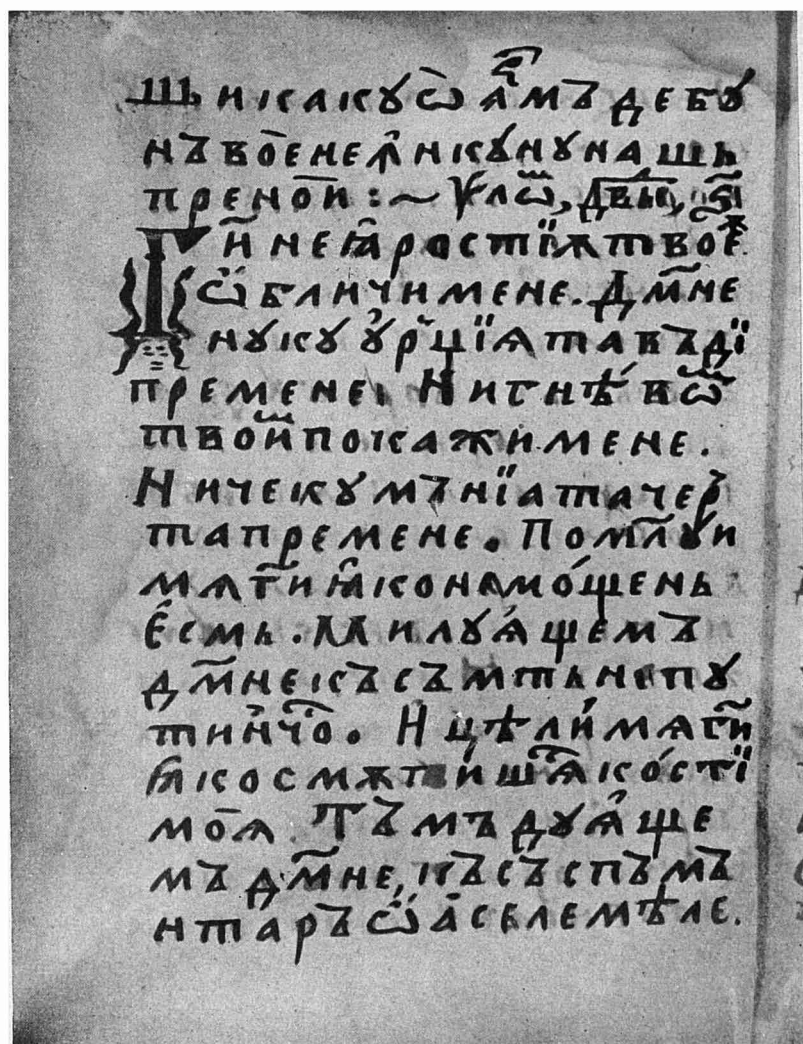 шь н какꙋ ѿ а҆рмъ де бꙋ
нъ вое не ꙟ҆кꙋнꙋнашь
пре нои :~ Ѱлѡм, двы, ѕ҃
Г҃и не ꙗ҆ростїѫ твоеѫ
ѡ҆бличи мене. Дм҃не
нꙋ кꙋ ꙋ҆рꙵцїѧ та въдї
пре мене. Ни гнѣвѡм
твоим покажи мене.
Ниче кꙋ мънїа та чер
та пре мене. Помлꙋи
мѧ г҃и ꙗ҆ко немощень
е҆смь. Милꙋѧ҆ще мъ
дм҃не къ съмть непꙋ
тинчос. Ицѣли мѧ г҃и
ꙗ҆ко смѫтишѫсѧ кости
моѧ. Тъмъдꙋѧ҆ще
мъ дм҃не, къ съ спъмъ
нтаръ ѡ҆аселе мѣле.